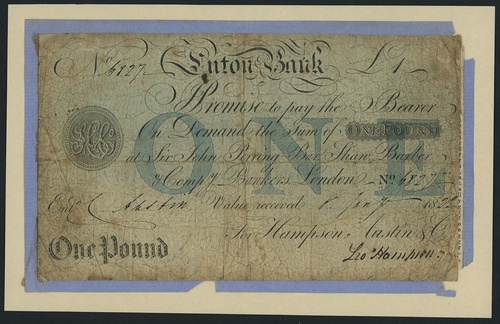 No. 6827. Luton Bank £1
I Promise to pay the Bearer
On Demand the Sum of ONE POUND
at Sir John Perring Bart. Shaw, Barber
& Compy. Bankers, London No. 6827
Entd. C Austin Value received Jany. 18
ONE
For Hampson, Austin & Co.
One Pound Geo. Hampson